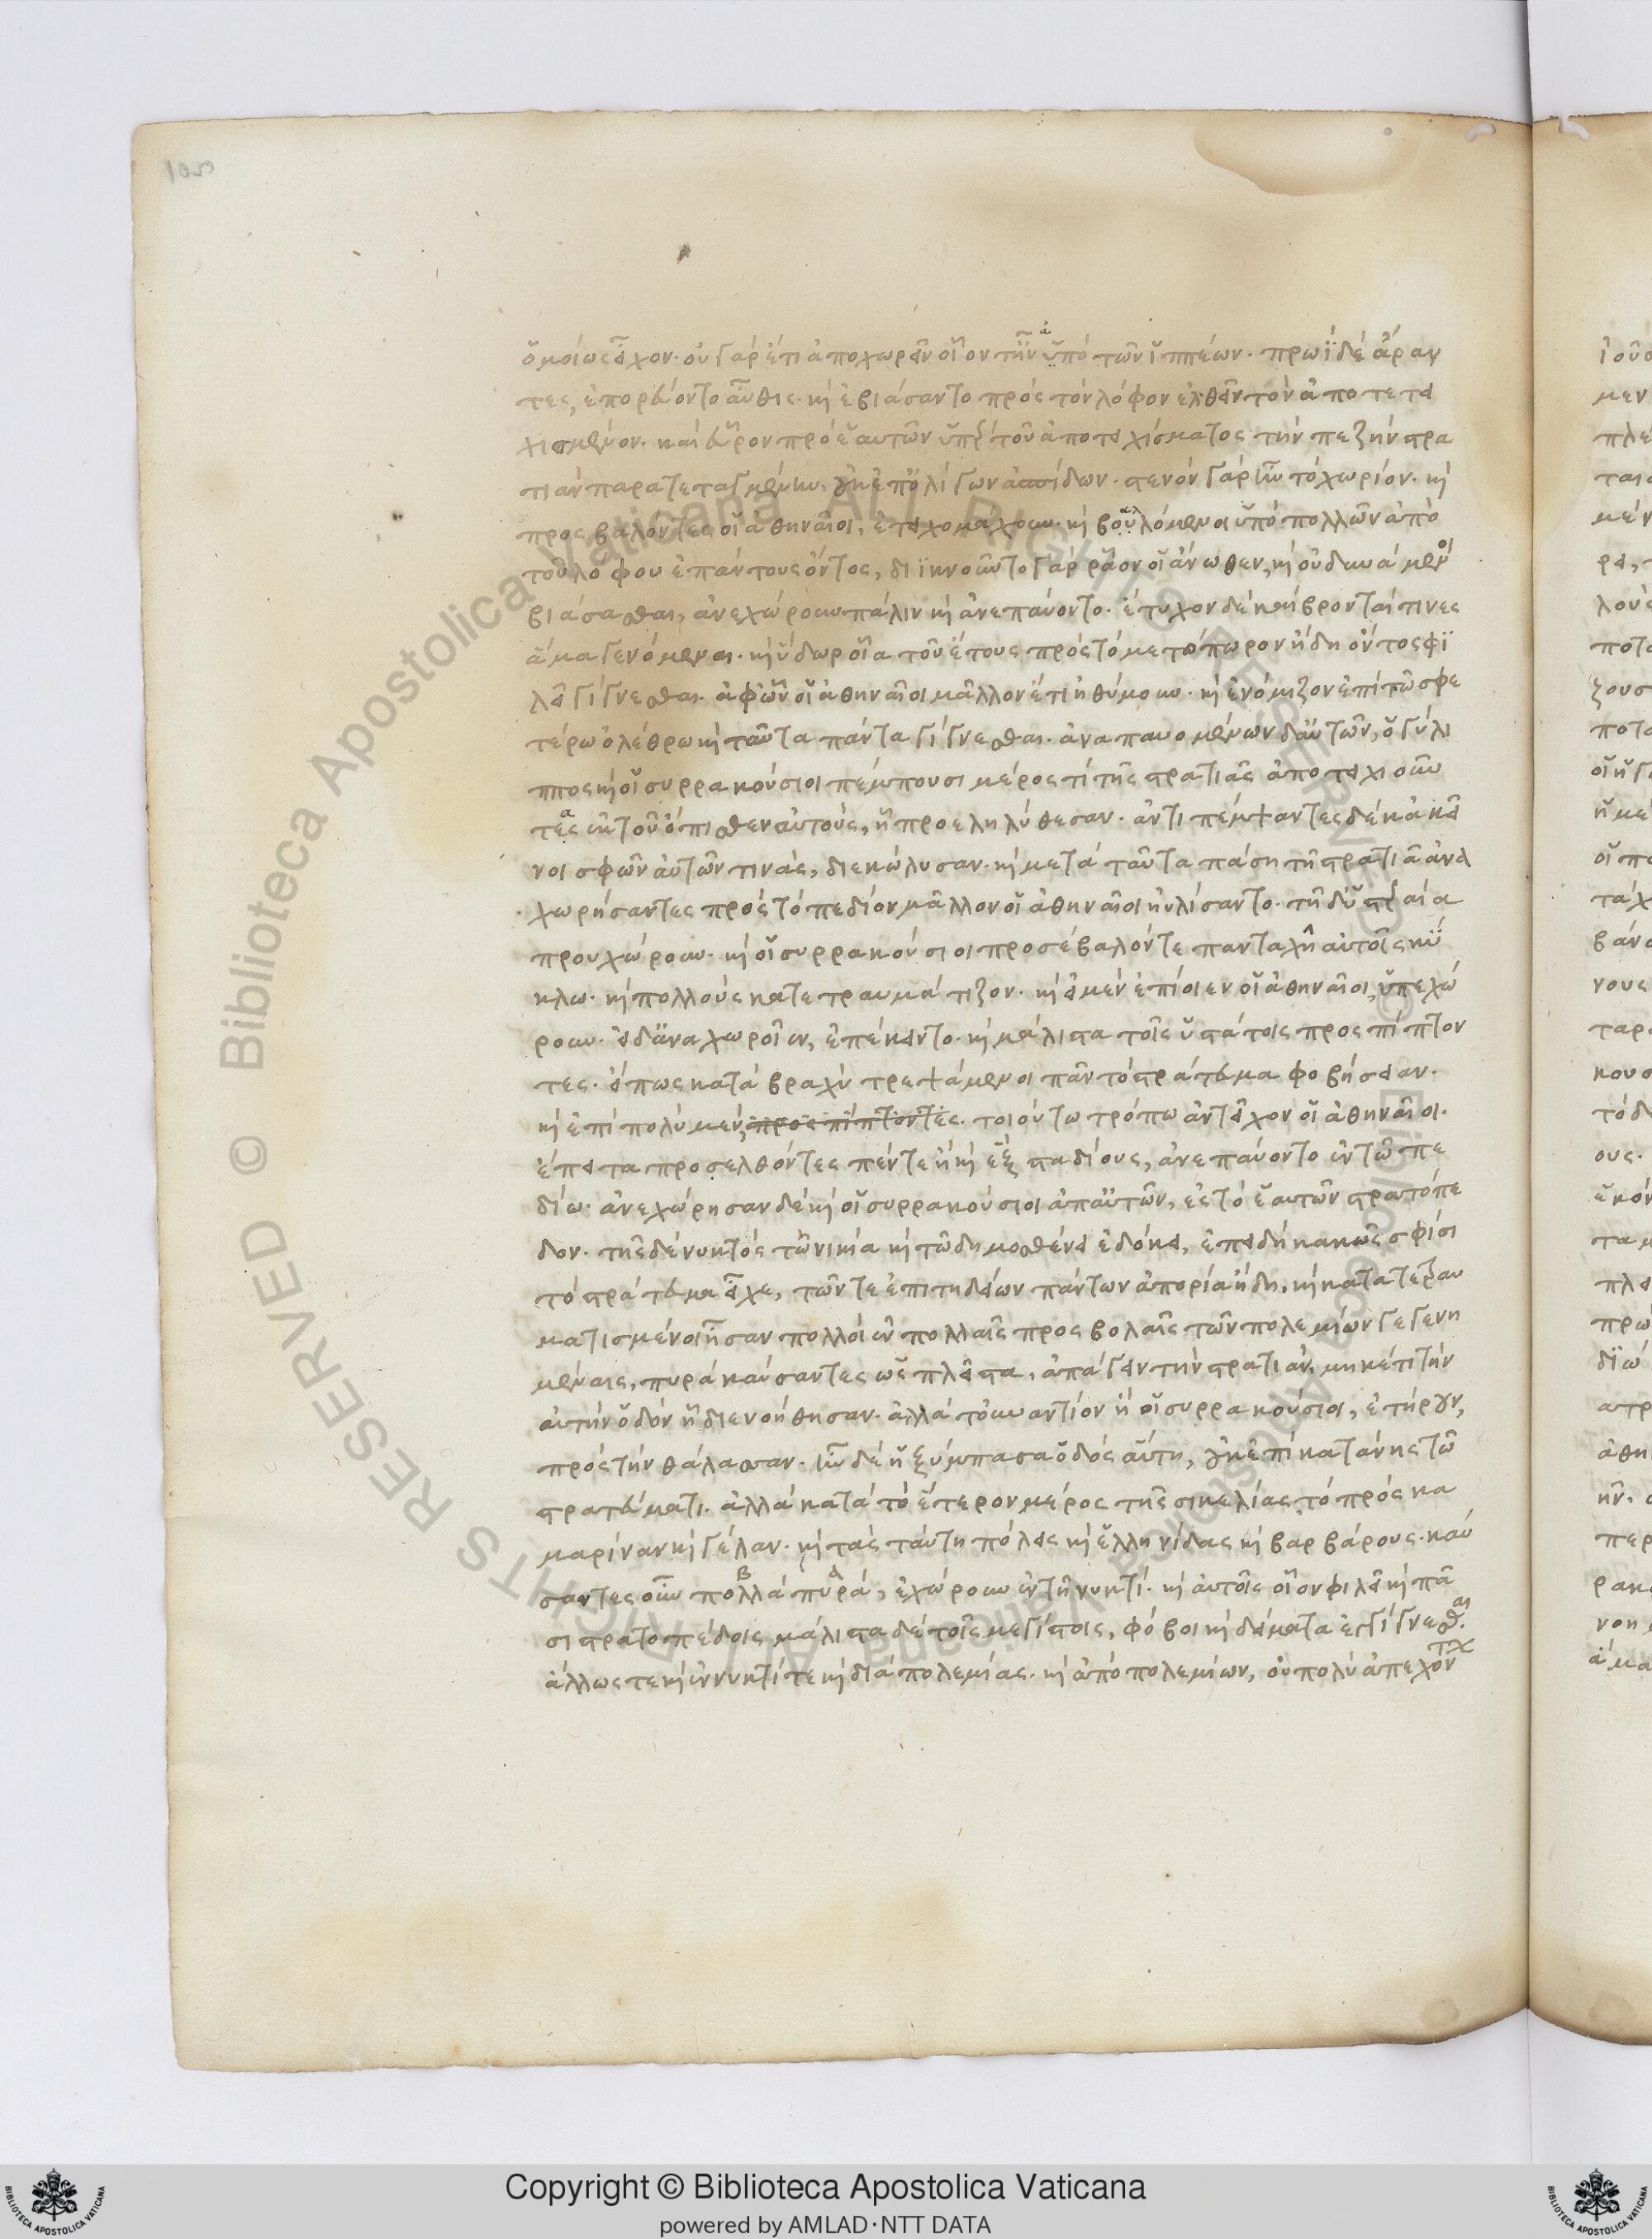 ὁμοίως εἶχον. οὐ γὰρ ἔτι ἀποχωρεῖν οἷόν τ' ἦν ὑπὸ τῶν ἱππέων. πρωῒ δὲ ἄραν
τες, ἐπορεύοντο αὖθις. καὶ ἐβιάσαντο πρὸς τὸν λόφον ἐλθεῖν τὸν ἀποτετει
χισμένον. καὶ εὗρον πρὸ ἑαυτῶν ὑπὲρ τοῦ ἀποτειχίσματος τὴν πεζὴν στρα
τιὰν παρατεταγμένην. οὐκ ἐπ' ὀλίγων ἀσπίδων. στενὸν γὰρ ἦν τὸ χωρίον. καὶ
προσβαλόντες οἱ ἀθηναῖοι, ἐτειχομάχουν. καὶ βαλλόμενοι ὑπὸ πολλῶν ἀπὸ
τοῦ λόφου ἐπάντους ὄντος, διϊκνοῦντο γὰρ ῥᾷον οἱ ἄνωθεν, καὶ οὐ δυνάμενοι
βιάσασθαι, ἀνεχώρουν πάλιν καὶ ἀνεπαύοντο. ἔτυχον δὲ καὶ βρονταί τινες
ἅμα γενόμεναι. καὶ ὕδωρ οἷα τοῦ ἔτους πρὸς τὸ μετόπωρον ἤδη ὄντος φι
λεῖ γίγνεσθαι. ἀφ' ὧν οἱ ἀθηναῖοι μᾶλλον ἔτι ἠθύμουν. καὶ ἐνόμιζον ἐπὶ τῷ σφε
τέρῳ ὀλέθρῳ καὶ ταῦτα πάντα γίγνεσθαι. ἀναπαυομένων δ' αὐτῶν, ὁ γύλι
ππος καὶ οἱ συρρακούσιοι πέμπουσι μέρος τὶ τῆς στρατιᾶς ἀποτειχιοῦν
τας ἐκ τοῦ ὄπισθεν αὐτοὺς, ᾗ προεληλύθεσαν. ἀντιπέμψαντες δὲ κἀκεῖ
νοι σφῶν αὐτῶν τινὰς, διεκώλυσαν. καὶ μετὰ ταῦτα πάσῃ τῇ στρατιᾷ ἀνα
χωρήσαντες πρὸς τὸ πεδίον μᾶλλον οἱ ἀθηναῖοι ηὐλίσαντο. τῇ δ' ὑστεραία
προυχώρουν. καὶ οἱ συρρακούσιοι προσέβαλόν τε πανταχῇ αὐτοῖς κύ
κλω. καὶ πολλοὺς κατετραυμάτιζον. καὶ εἰ μὲν ἐπίοιεν οἱ ἀθηναῖοι, ὑπεχώ
ρουν. εἰ δ' ἀναχωροῖεν, ἐπέκειντο. καὶ μάλιστα τοῖς ὑστάτοις προσπίπτον
τες. εἴ πως κατὰ βραχὺ τρεψάμενοι πᾶν τὸ στράτευμα φοβήσειαν.
καὶ ἐπὶ πολὺ μὲν, προσπίπτοντες. τοιούτω τρόπω ἀντεῖχον οἱ ἀθηναῖοι.
ἔπειτα προσελθόντες πέντε ἢ καὶ ἓξ σταδίους, ἀνεπαύοντο ἐν τῷ πε
δίω. ἀνεχώρησαν δὲ καὶ οἱ συρρακούσιοι ἀπ' αὐτῶν, ἐς τὸ ἑαυτῶν στρατόπε
δον. τῆς δὲ νυκτὸς τῷ νικία καὶ τῷ δημοσθένει ἐδόκει, ἐπειδὴ κακῶς σφίσι
τὸ στράτευμα εἶχε, τῶν τε ἐπιτηδείων πάντων ἀπορία ἤδη, καὶ κατατετραυ
ματισμένοι ἦσαν πολλοὶ ἐν πολλαῖς προσβολαῖς τῶν πολεμίων γεγενη
μέναις, πυρὰ καύσαντες ὡς πλεῖστα, ἀπάγειν τὴν στρατιὰν, μηκέτι τὴν
αὐτὴν ὁδὸν ᾗ διενοήθησαν. ἀλλὰ τοὐναντίον ἢ οἱ συρρακούσιοι, ἐτήρουν,
πρὸς τὴν θάλασσαν. ἦν δὲ ἡ ξύμπασα ὁδὸς αὕτη, οὐκ ἐπὶ κατάνης τῷ
στρατεύματι. ἀλλὰ κατὰ τὸ ἕτερον μέρος τῆς σικελίας τὸ πρὸς κα
μαρίναν καὶ γέλαν. καὶ τὰς ταύτη πόλεις καὶ ἑλληνίδας καὶ βαρβάρους. καύ
σαντες οὖν πολλὰ πυρὰ, ἐχώρουν ἐν τῇ νυκτί. καὶ αὐτοῖς οἷον φιλεῖ καὶ πᾶ
σι στρατοπέδοις μάλιστα δὲ τοῖς μεγίστοις, φόβοι καὶ δείματα ἐγγίγνεσθαι
ἄλλως τε καὶ ἐν νυκτί τε καὶ διὰ πολεμίας. καὶ ἀπὸ πολεμίων, οὐ πολὺ ἀπεχόντ
Copyright © Biblioteca Apostolica Vaticana
powered by AMLAD·NTT DATA